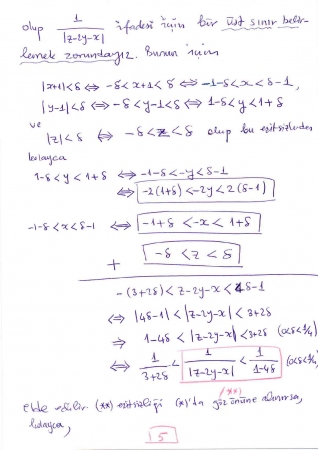 olup 1/|z-2y-x| ifadesi için bir üst sınır belir-
lemek zorundayız. Bunun için
|x+1|<δ ⇔ -δ<x+1<δ ⇔ -1-δ<x<δ-1,
|y-1|<δ ⇔ -δ<y-1<δ ⇔ 1-δ<y<1+δ
ve
|z|<δ ⇔ -δ<z<δ olup bu eşitsizlerden
kolayca
1-δ<y<1+δ ⇔ -1-δ<-y<δ-1
⇔ -2(1+δ)<-2y<2(δ-1)
-1-δ<x<δ-1 ⇔ -1+δ<-x<1+δ
+ -δ<z<δ
-(3+2δ)<z-2y-x<4δ-1
⇔ |4δ-1|<|z-2y-x|<3+2δ
⇒ 1-4δ<|z-2y-x|<3+2δ (0<δ<1/4)
⇔ 1/(3+2δ) < 1/|z-2y-x| < 1/(1-4δ) (0<δ<1/4)
(**)
elde edilir. (**) eşitsizliği (*)'da göz önüne alınırsa,
kolayca,
5